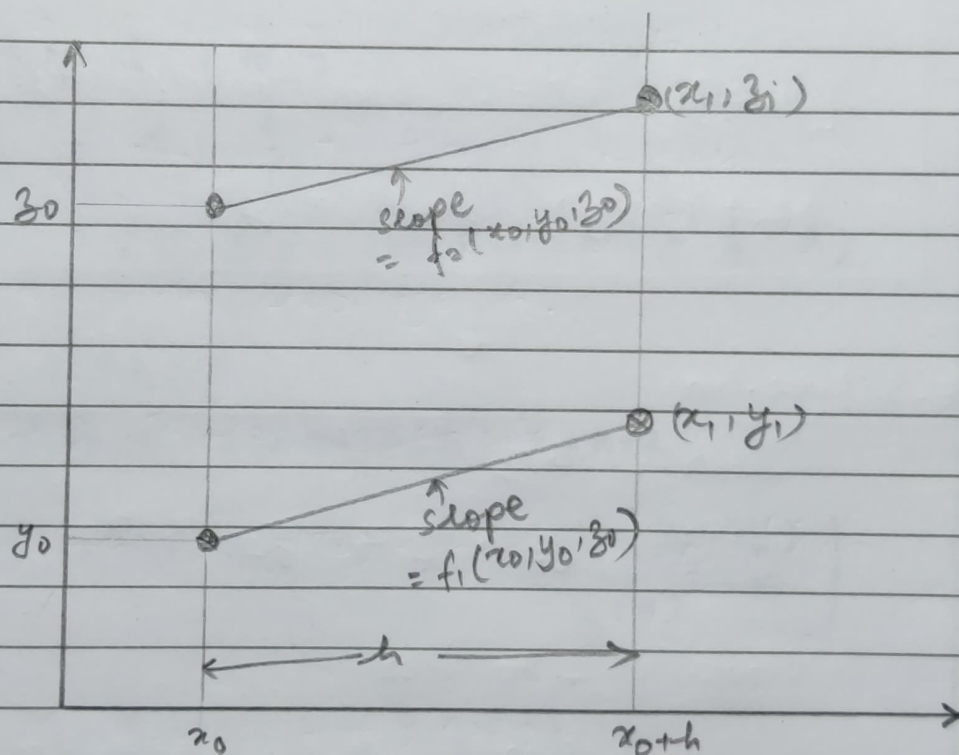 (x₁, z₁)
z₀
slope
= f₂(x₀, y₀, z₀)
(x₁, y₁)
y₀
slope
= f₁(x₀, y₀, z₀)
h
x₀
x₀+h